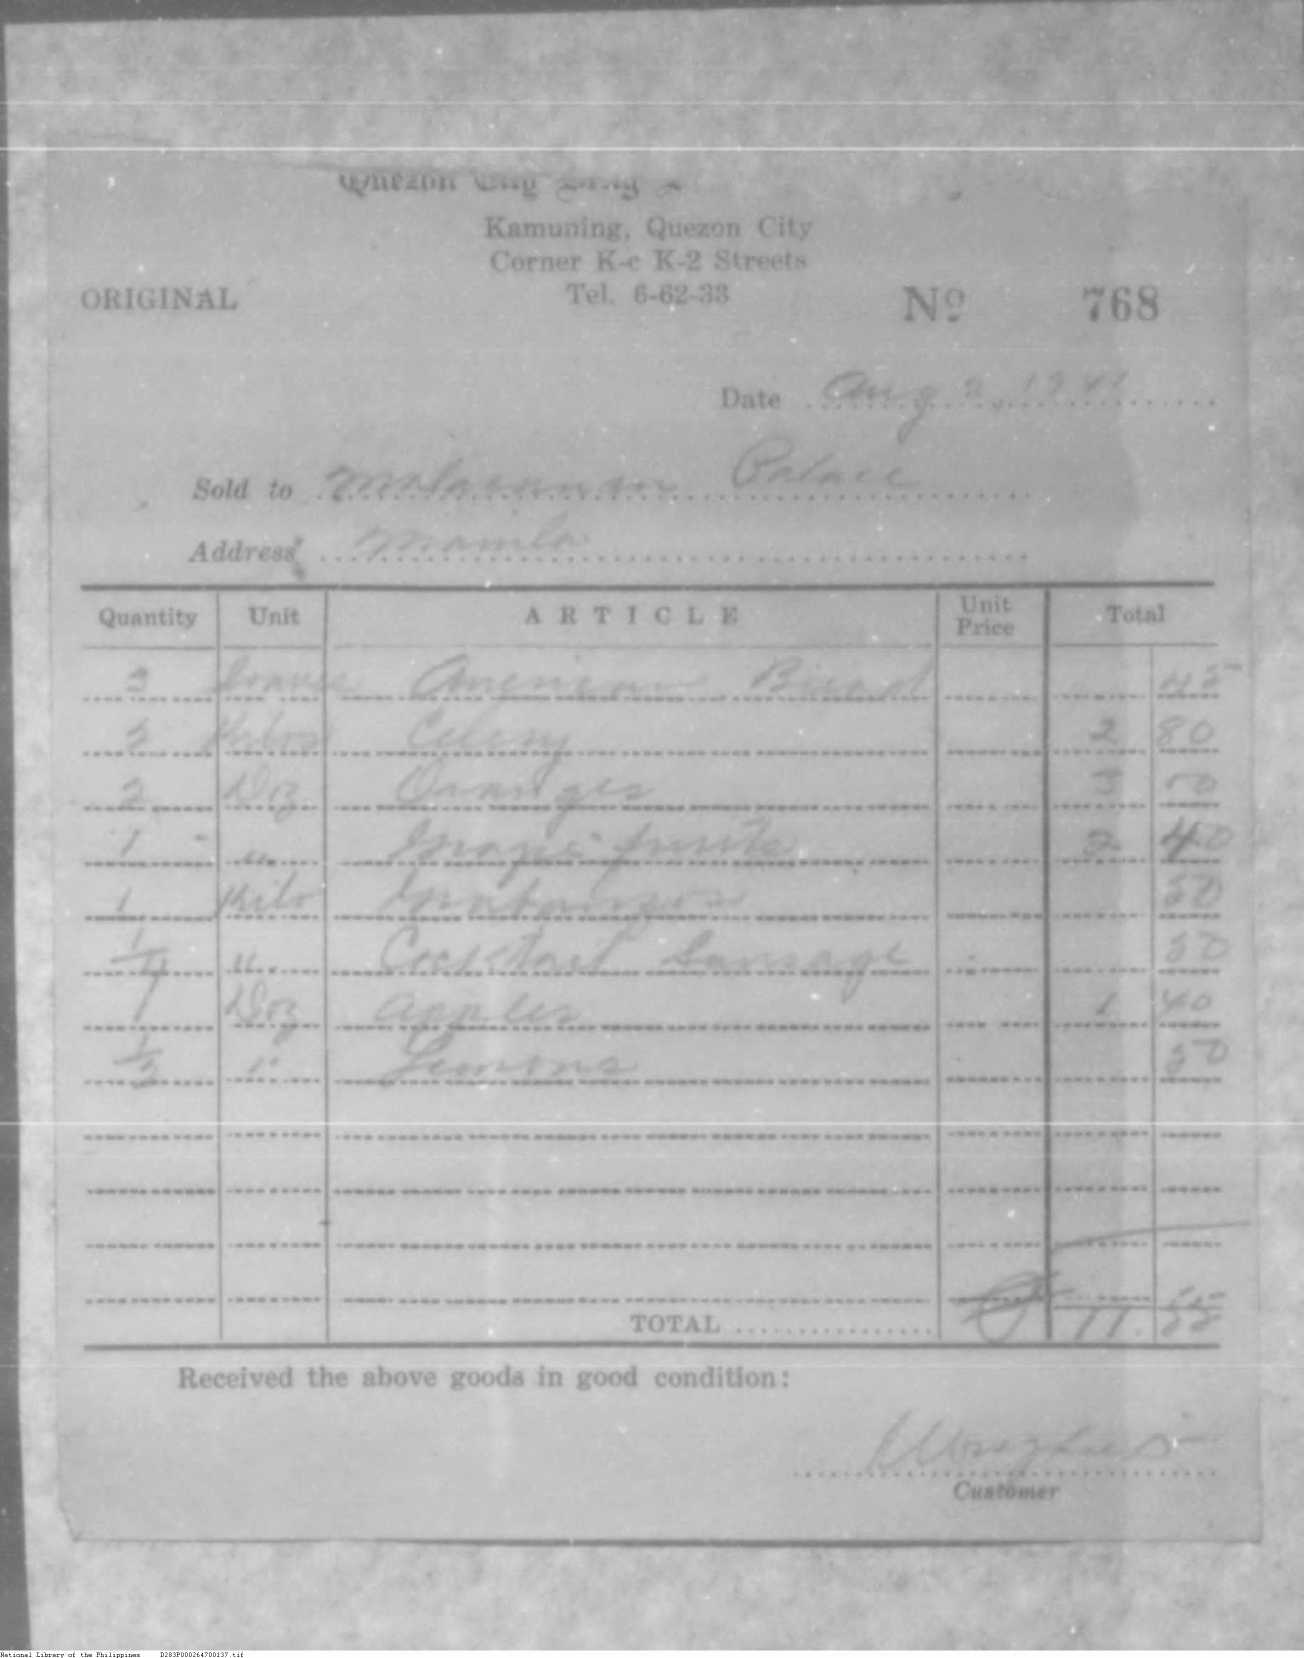 Quezon City
Kamuning, Quezon City
Corner K-c K-2 Streets
ORIGINAL Tel. 6-62-33 No 768
Date Aug 2, 1941
Sold to Malacanan Palace
Address Manila
Quantity Unit ARTICLE Unit Price Total
3 loaves American Bread 45
2 Kilos Celery 2 80
2 Doz Oranges 3 00
1 " Grape fruits 2 40
1 Kilo 50
" Cocktail Sausage 50
1 Doz Apples 1 40
1/2 " Lemons 50
TOTAL 11.55
Received the above goods in good condition:
Customer
National Library of the Philippines D283P000264700137.tif